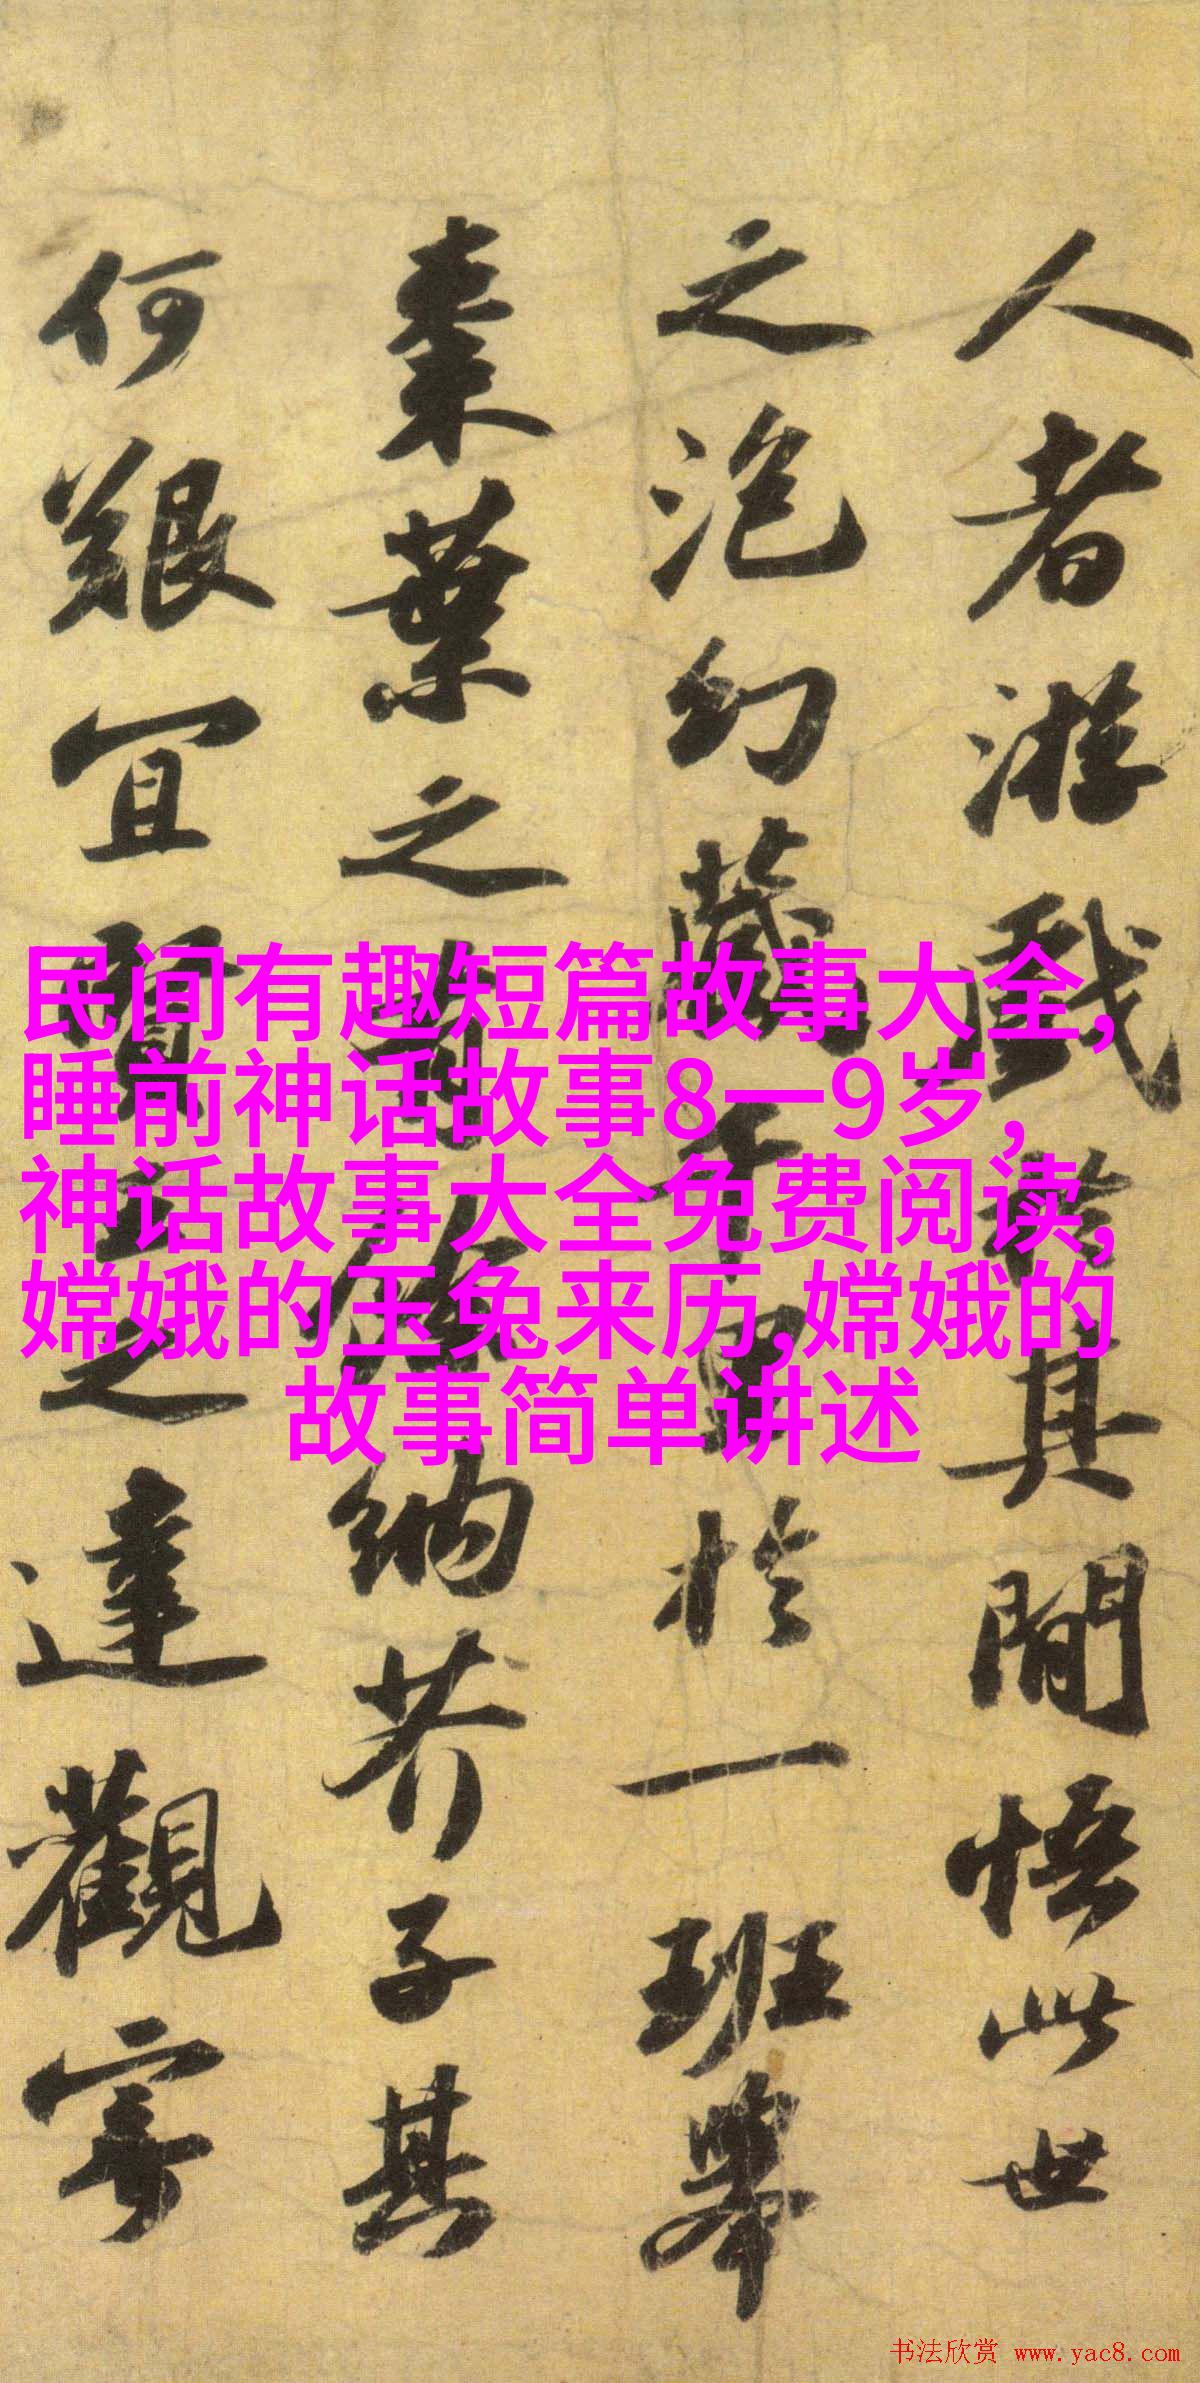 人者游戲於其間悟此世
之泡幻藏千里於一班舉
棗葉之有餘納芥子其
何艱宜賢王之達觀寄
民间有趣短篇故事大全,
睡前神话故事8一9岁,
神话故事大全免费阅读,
嫦娥的玉兔来历,嫦娥的
故事简单讲述
书法欣赏 www.yac8.com